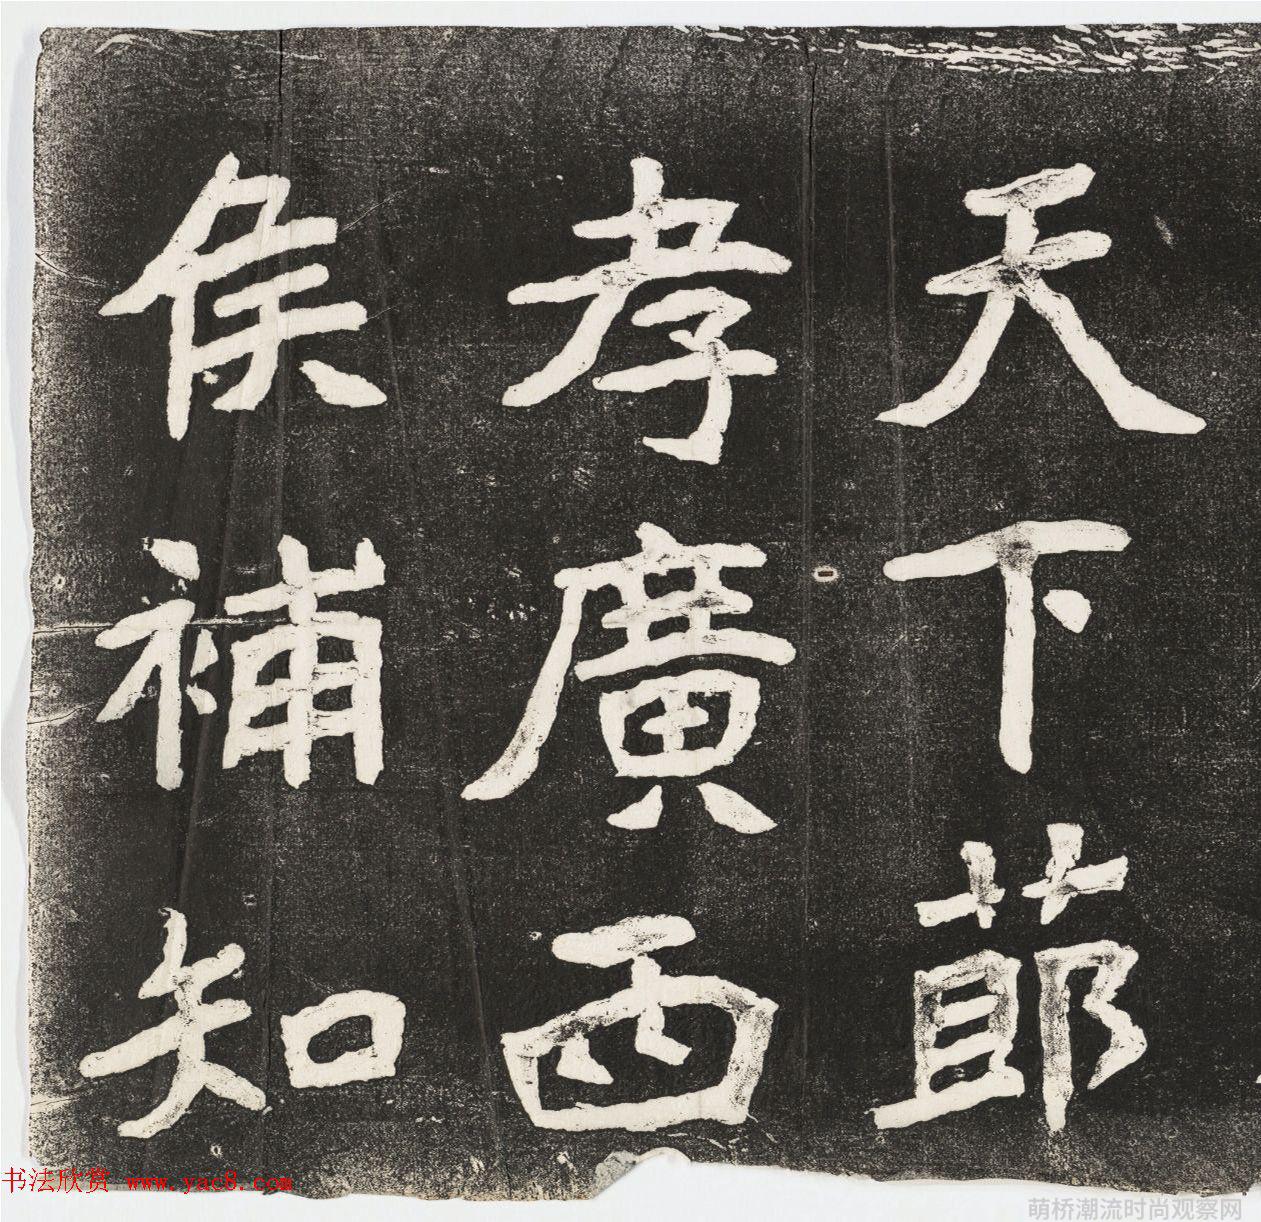 天下莭
孝廣西
侯補知
书法欣赏 www.yac8.com
萌桥潮流时尚观察网